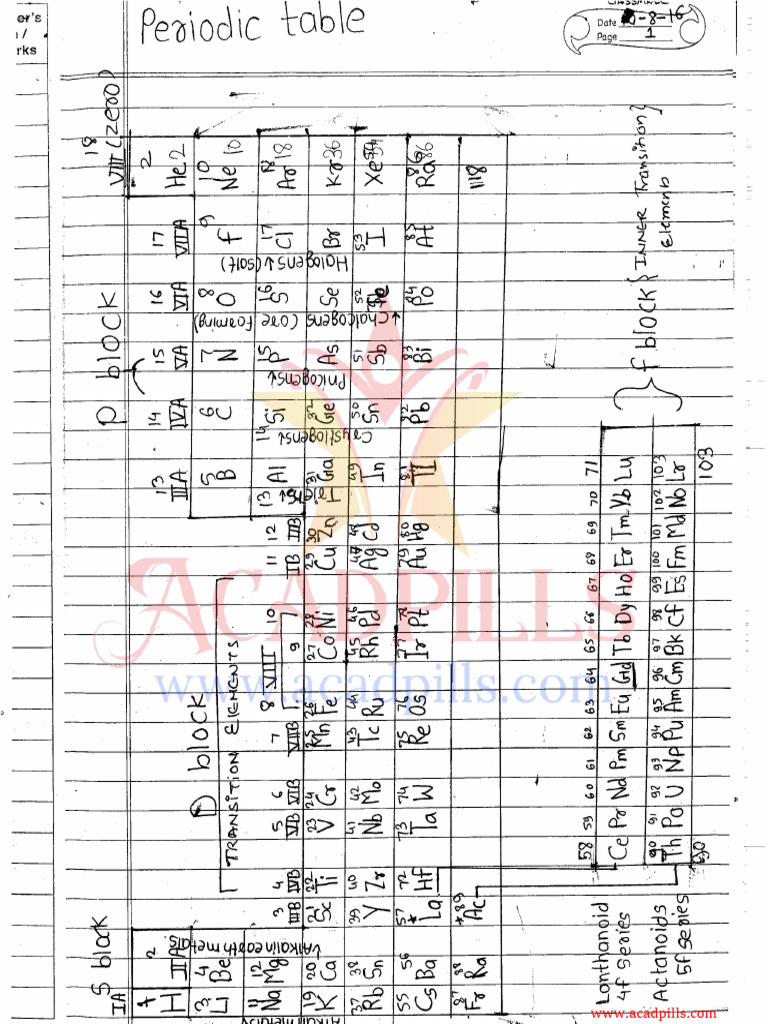 er's
rks
Periodic table
CLASSMATE
Date 10-8-16
Page 1
S block
D block
P block
18
VIII (zero)
IA
2
IIA
TRANSITION ELEMENTS
3 4 5 6 7 8 9 10 11 12 13 14 15 16 17
IIIB IVB VB VIB VIIB VIII IB IIB IIIA IVA VA VIA VIIA
1 2
H He 2
3 4 5 6 7 8 9 10
Li Be B C N O F Ne 10
Alkalin earth metals
11 12 13 14 15 16 17 18
Na Mg Al Si P S Cl Ar 18
Crystlogens↓ Pnicogens↓ Chalcogens (ore foaming) Halogens↓ (salt)
19 20 21 22 23 24 25 26 27 28 29 30 31 32
K Ca Sc Ti V Cr Mn Fe Co Ni Cu Zn Ga Ge As Se Br Kr 36
37 38 39 40 41 42 43 44 45 46 47 48 49 50 51 52 53 54
Rb Sn Y Zr Nb Mo Tc Ru Rh Pd Ag Cd In Sn Sb Te I Xe
55 56 57 72 73 74 75 76 77 78 79 80 81 82 83 84 85 86
Cs Ba La* Hf Ta W Re Os Ir Pt Au Hg Tl Pb Bi Po At Ra 86
87 88 *89 118
Fr Ra Ac
58 59 60 61 62 63 64 65 66 67 68 69 70 71
Lonthanoid Ce Pr Nd Pm Sm Eu Gd Tb Dy Ho Er Tm Yb Lu
4f series
90 91 92 93 94 95 96 97 98 99 100 101 102 103
Actanoids Th Pa U Np Pu Am Cm Bk Cf Es Fm Md No Lr
5f series
90 103
f block { INNER Transition Elements }
ACADPILLS
www.acadpills.com
www.acadpills.com